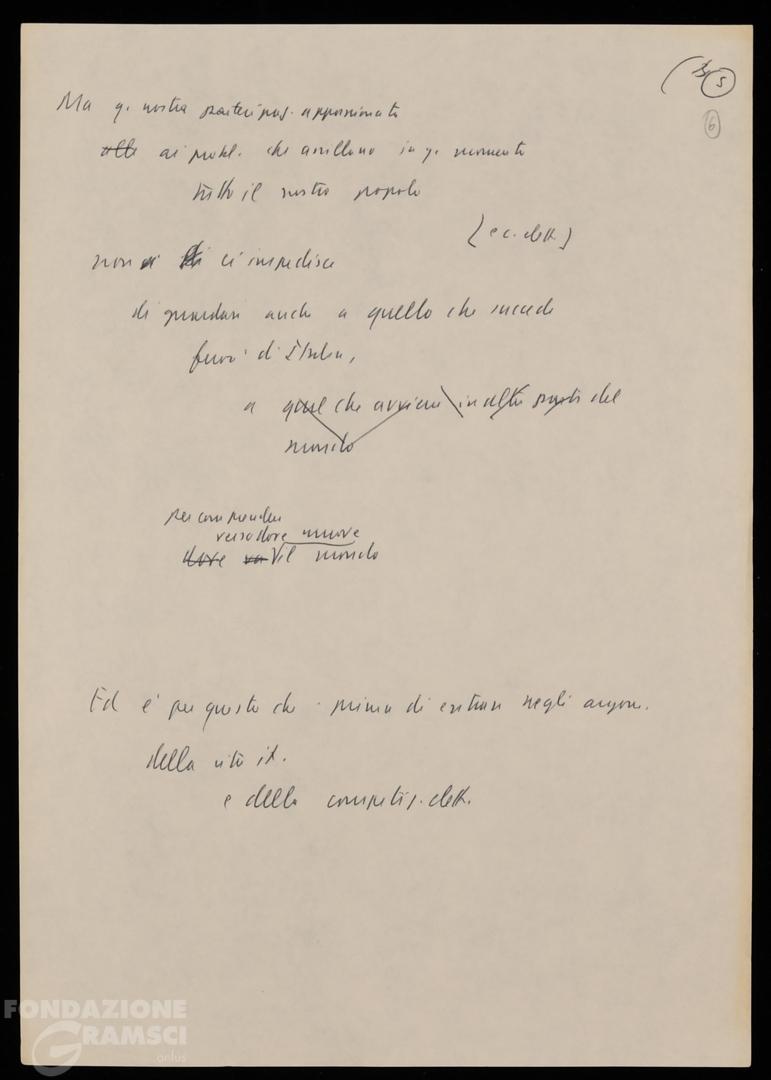 5
6
Ma q. nostra partecipaz. appassionata
alla ai probl. che assillano in q. momento
tutto il nostro popolo
(e c. elett.)
non ci impedisce
di guardare anche a quello che succede
fuori d'Italia,
a quel che avviene in altre parti del
mondo
per comprendere
verso dove muove
dove va il mondo
Ed è per questo che prima di entrare negli argom.
della vita it.
e della competiz. elett.
FONDAZIONE
GRAMSCI
onlus